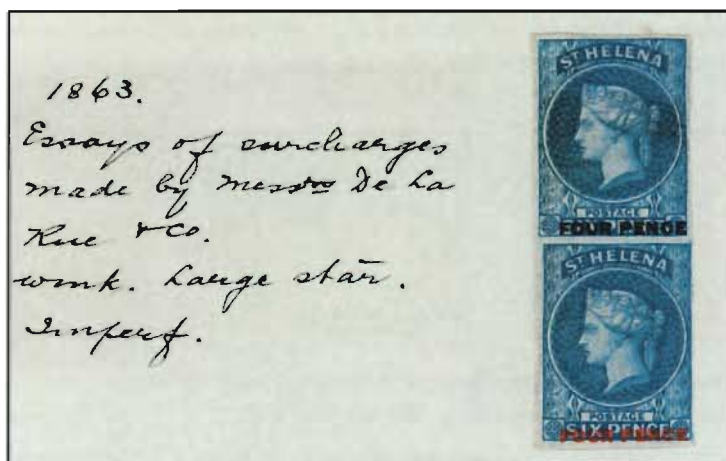 1863.
Essays of surcharges
made by Messrs De La
Rue & Co.
wmk. Large star.
Imperf.
ST HELENA
POSTAGE
FOUR PENCE
ST HELENA
POSTAGE
SIX PENCE
FOUR PENCE